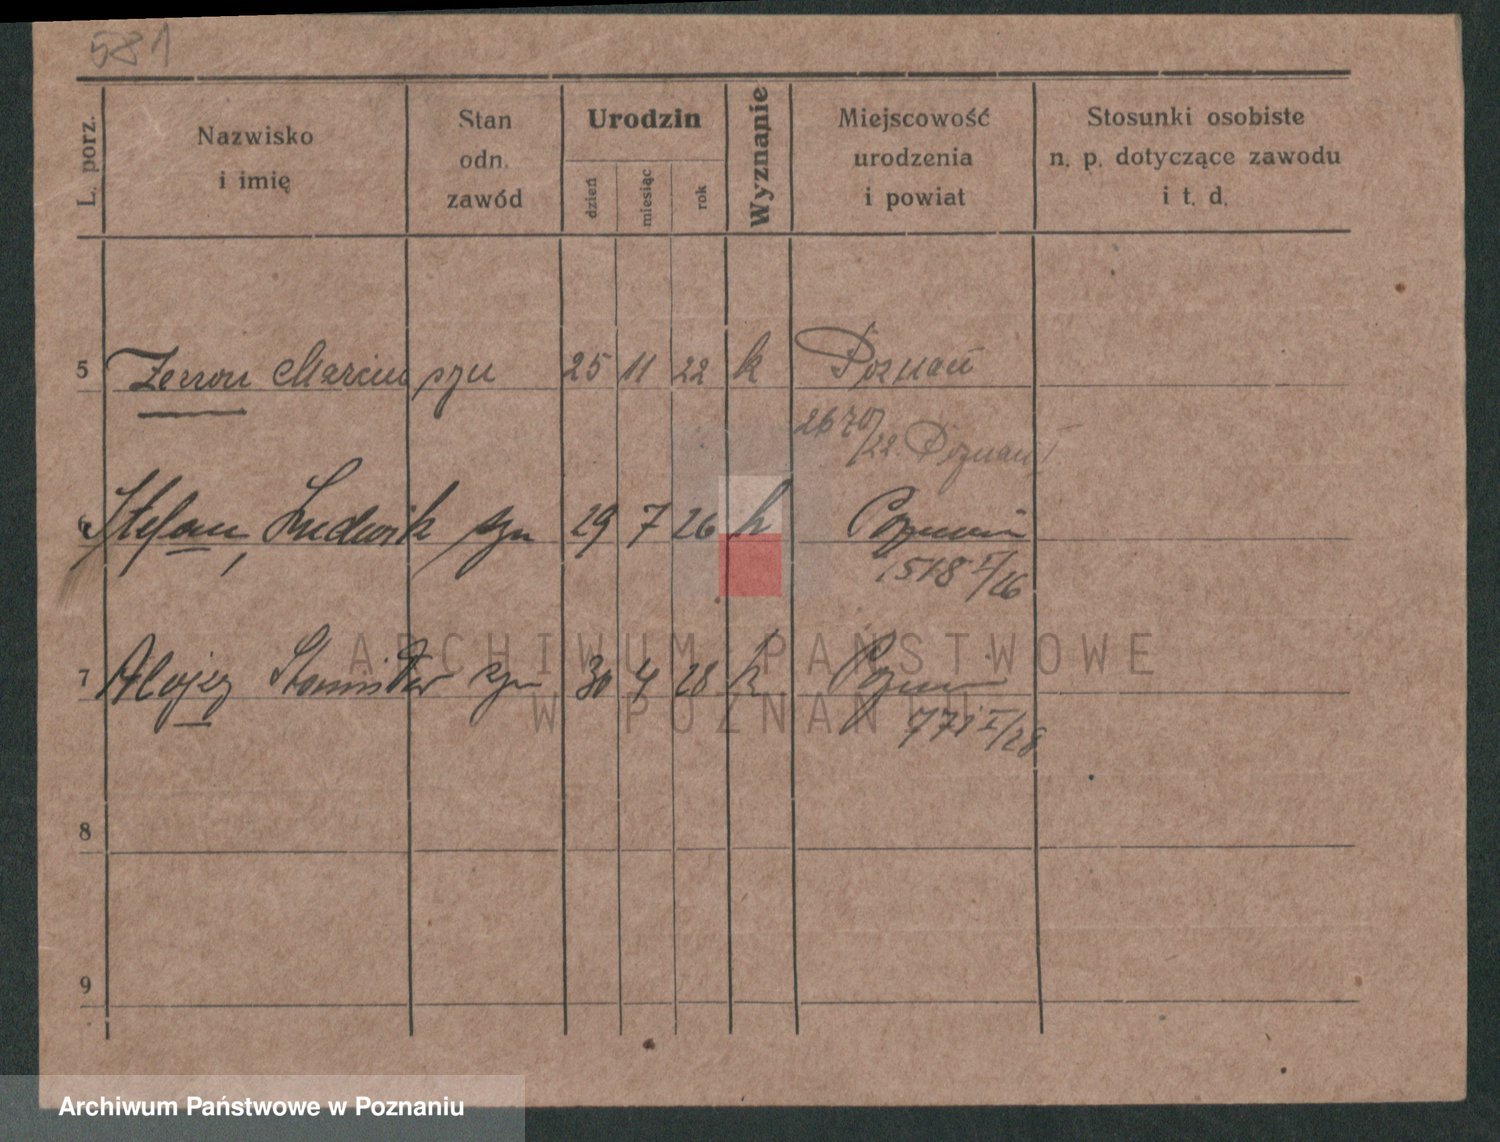 581
L. porz.
Nazwisko
i imię
Stan
odn.
zawód
Urodzin
dzień
miesiąc
rok
Wyznanie
Miejscowość
urodzenia
i powiat
Stosunki osobiste
n. p. dotyczące zawodu
i t. d.
5 Zenon Marcin syn 25 11 22 k Poznań
2670/22 Poznań I
6 Stefan, Ludwik syn 29 7 26 k Poznań
1518 I/26
7 Alojzy Stanisław syn 30 4 28 k Poznań
771 I/28
8
9
ARCHIWUM PAŃSTWOWE
W POZNANIU
Archiwum Państwowe w Poznaniu